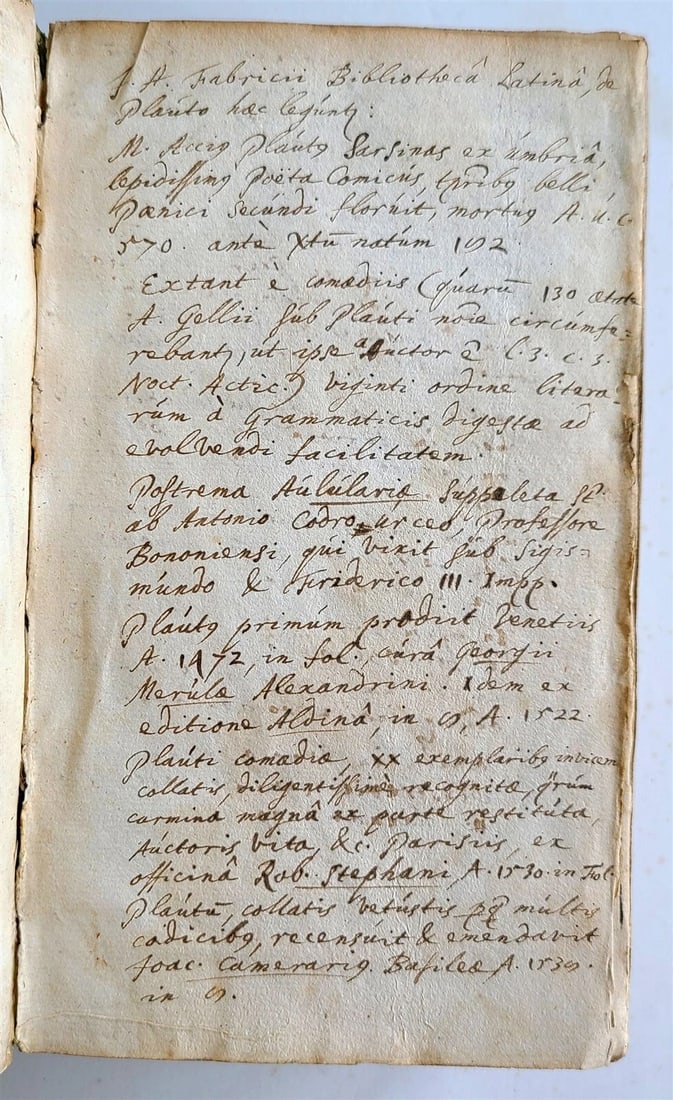 J. A. Fabricii Bibliothecâ Latinâ, de
Plauto hæc leguntꝫ:
M. Acciꝰ Plautꝰ Sarsinas ex Umbriâ,
lepidissimꝰ Poëta Comicus, tp̄ribꝰ belli
Pœnici secundi floruit, mortuꝰ A. U. C
570. antè Xtū natum 192.
Extant è comœdiis (quarū 130 ætate
A. Gellii sub Plauti noīe circumfe=
rebantꝫ, ut ipse Auctor ē l. 3. c. 3.
Noct. Actic.) viginti ordine litera-
rum à Grammaticis digestæ ad
evolvendi facilitatem.
Postrema Aululariæ suppleta
ab Antonio Codro Urceo, Professore
Bononiensi, qui vixit sub Sigis=
mundo & Friderico III. Impp.
Plautꝰ primùm prodiit Venetiis
A. 1472, in fol. curâ Georgii
Merulæ Alexandrini. Idem ex
editione Aldinâ, in 8, A. 1522.
Plauti comœdiæ, XX exemplaribꝰ invicem
collatis, diligentissimè recognitæ, qrum
carmina magnâ ex parte restituta,
Auctoris vita, &c. Parisiis, ex
officinâ Rob. Stephani A. 1530. in Fol.
Plautū, collatis vetustis multis
codicibꝰ, recensuit & emendavit
Joac. Camerariꝰ. Basileæ A.
in 8.